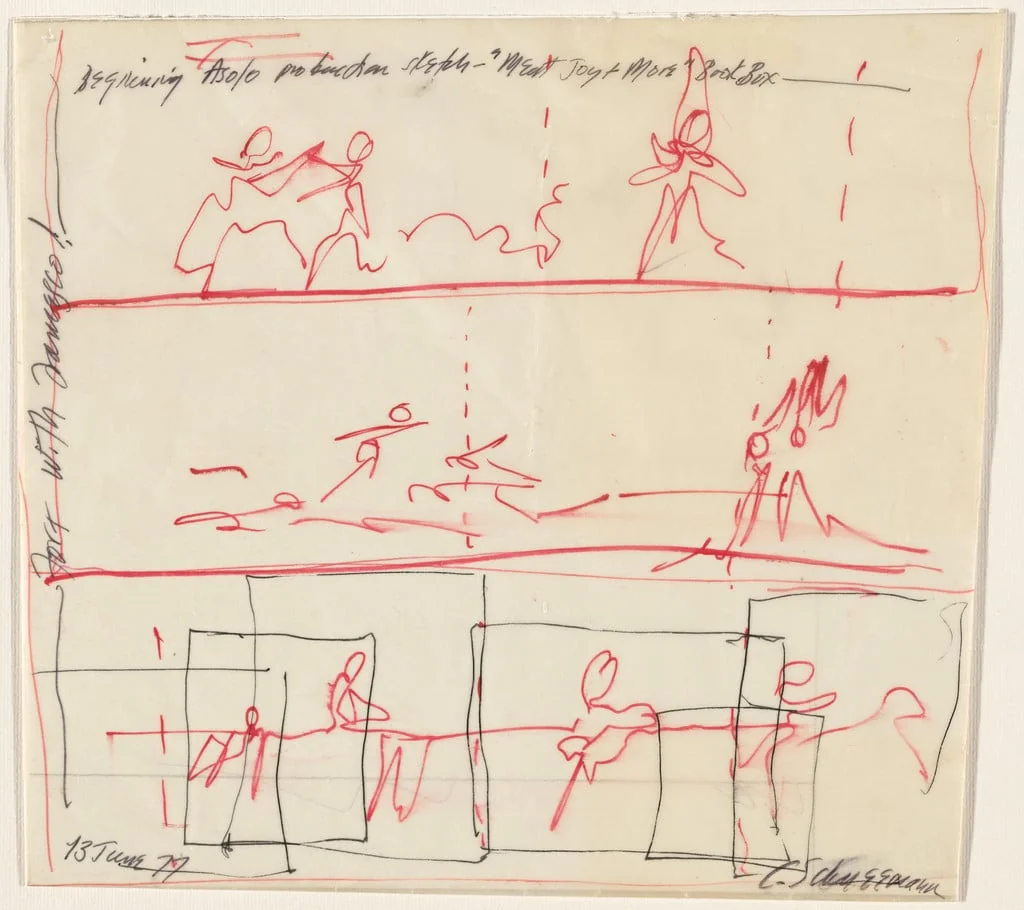 Beginning Asolo production sketch - "Meat Joy + More" Book Box
For with Francesco!!
13 June 77
C. Schneemann